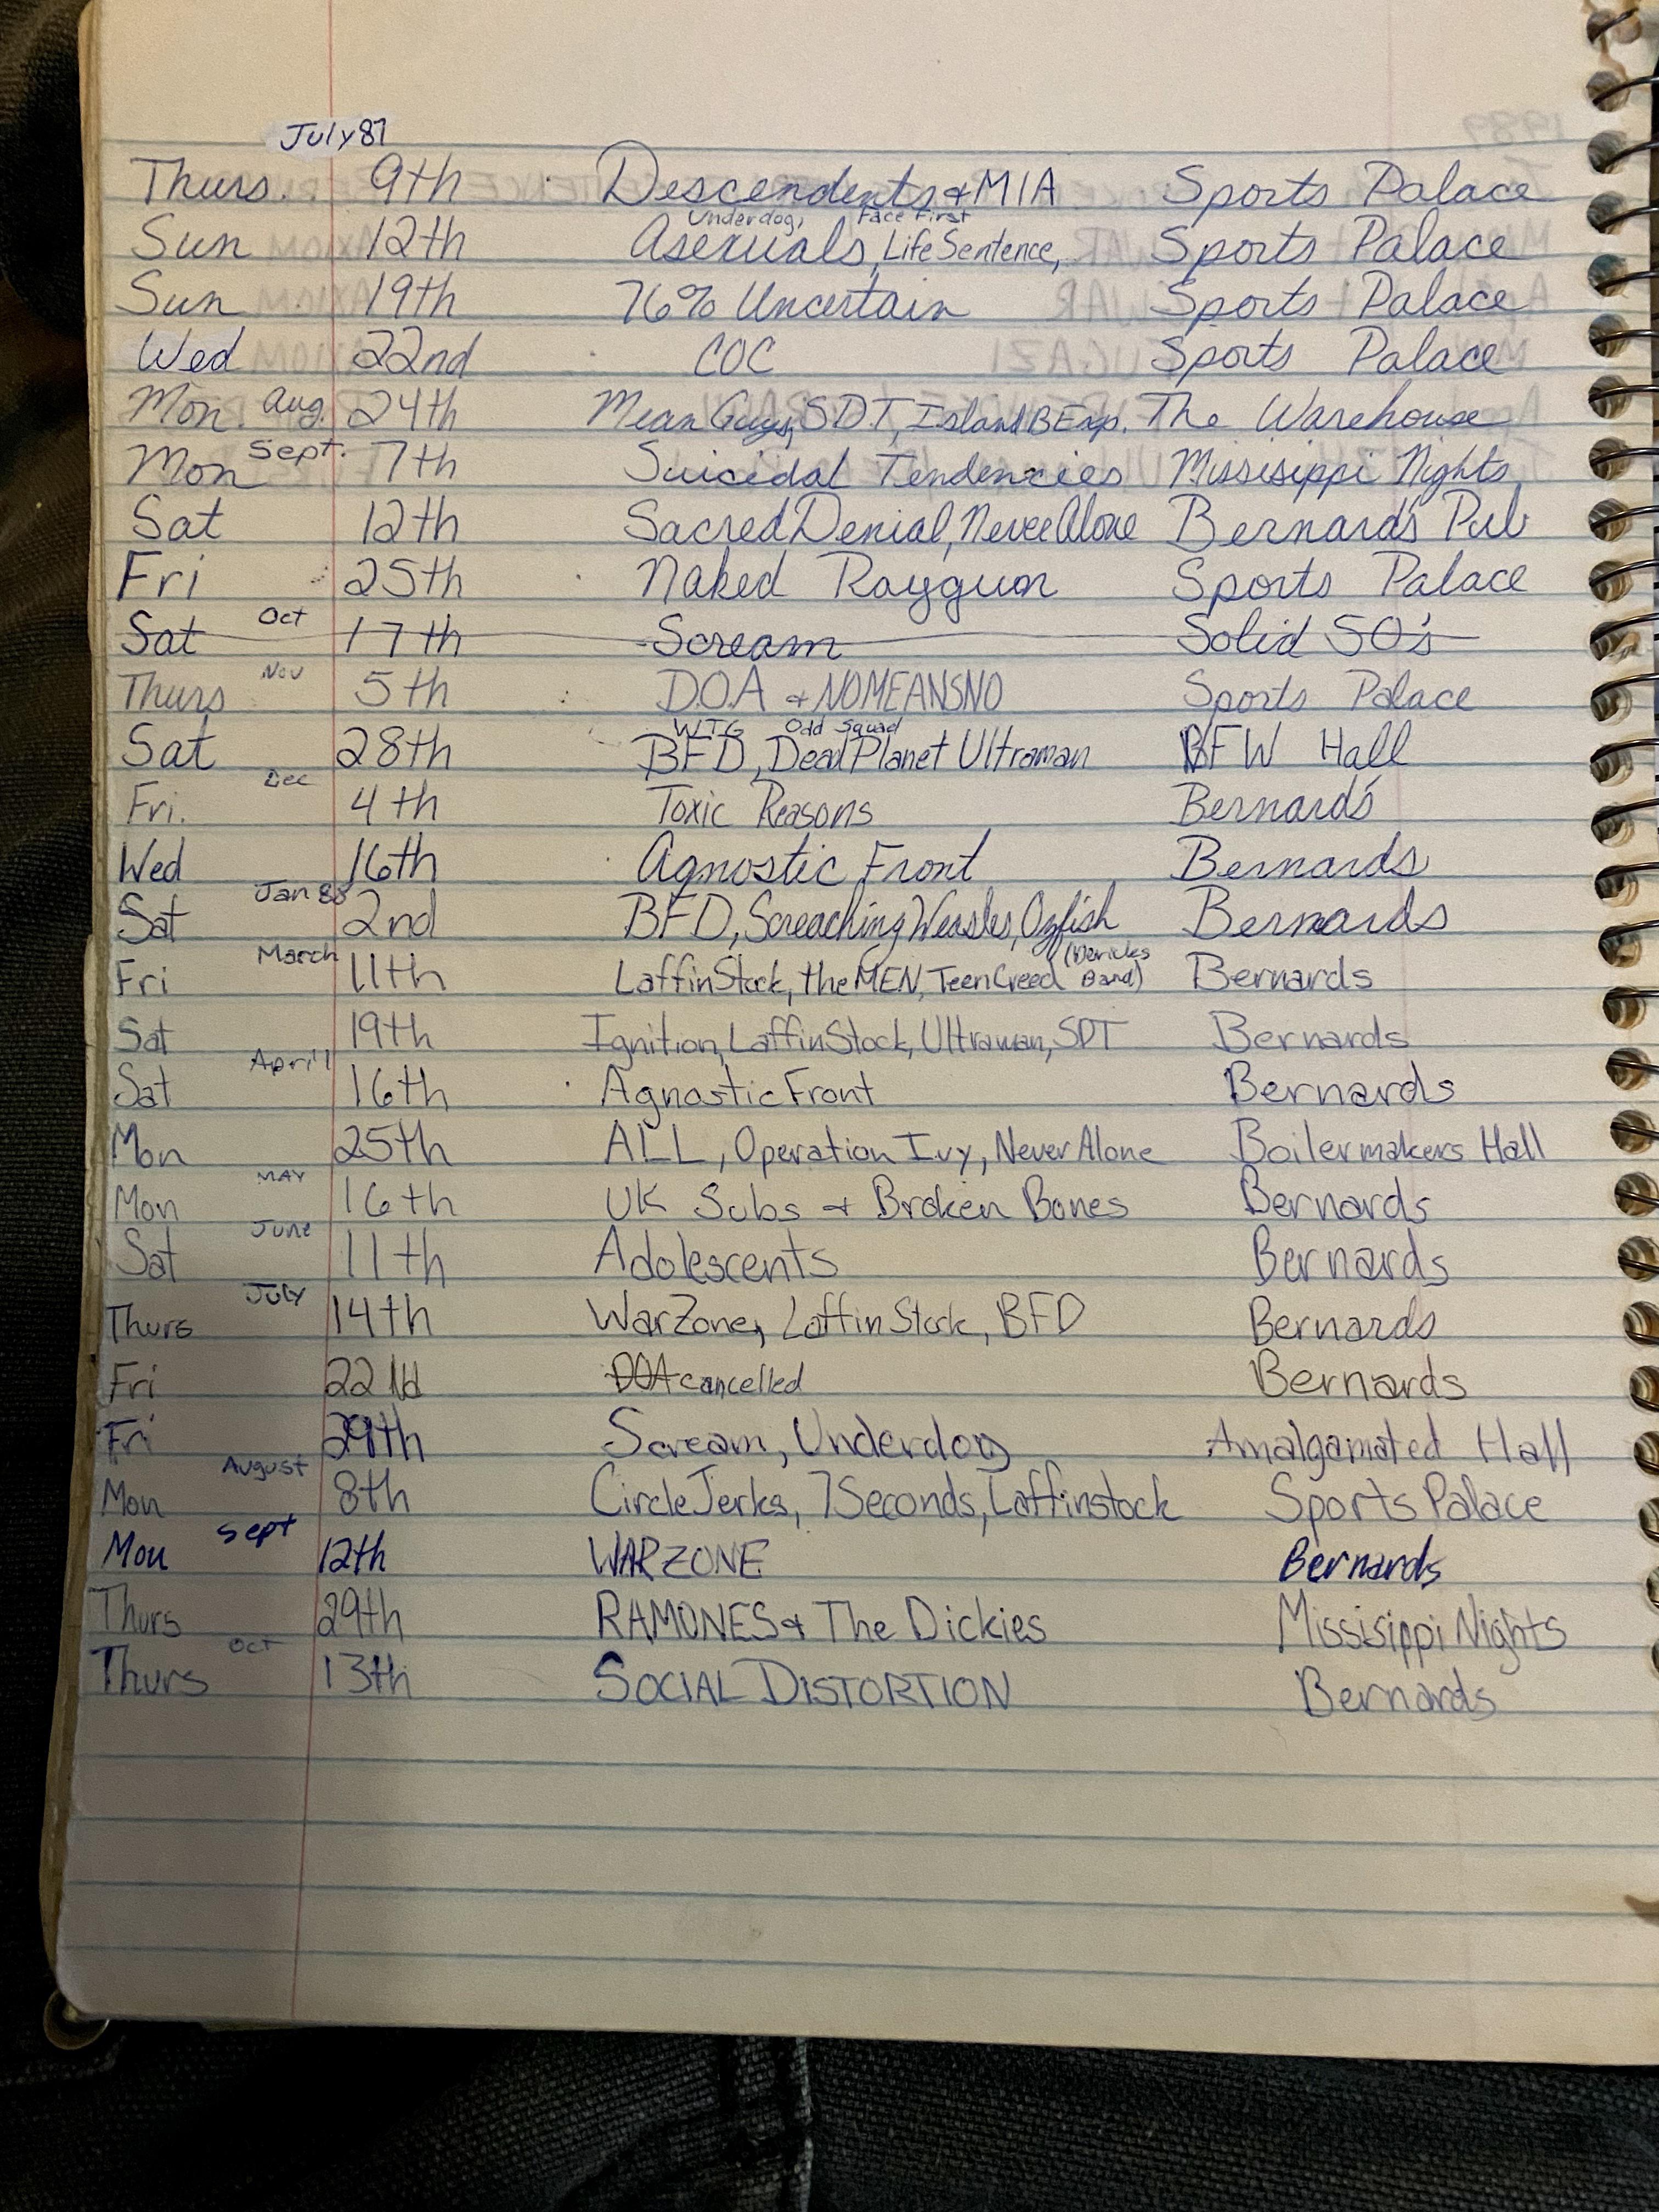 July 87
Thurs. 9th Descendents & MIA Sports Palace
Underdog, Face First
Sun 12th Asexuals, Life Sentence, Sports Palace
Sun 19th 76% Uncertain Sports Palace
Wed 22nd COC Sports Palace
Mon. Aug. 24th Mean Guys, SDT, Island B Exp. The Warehouse
Sept.
Mon 7th Suicidal Tendencies Missisippi Nights
Sat 12th Sacred Denial, Never Alone Bernard's Pub
Fri 25th Naked Raygun Sports Palace
Oct
Sat 17th Scream Solid 50's
Nov
Thurs 5th D.O.A & NOMEANSNO Sports Palace
WTG Odd Squad
Sat 28th BFD, Dead Planet Ultraman BFW Hall
Dec
Fri. 4th Toxic Reasons Bernard's
Wed 16th Agnostic Front Bernards
Jan 88
Sat 2nd BFD, Screaching Weasles, Ozfish Bernards
March (Dericks
Fri 11th Laffin Stock, the MEN, Teen Creed Band) Bernards
Sat 19th Ignition, Laffin Stock, Ultraman, SDT Bernards
April
Sat 16th Agnostic Front Bernards
Mon 25th ALL, Operation Ivy, Never Alone Boilermakers Hall
MAY
Mon 16th UK Subs & Broken Bones Bernards
June
Sat 11th Adolescents Bernards
July
Thurs 14th WarZone, Laffin Stock, BFD Bernards
Fri 22Nd DOA cancelled Bernards
Fri 29th Scream, Underdog Amalgamated Hall
August
Mon 8th Circle Jerks, 7Seconds, Laffinstock Sports Palace
Sept
Mon 12th WARZONE Bernards
Thurs 29th RAMONES & The Dickies Missisippi Nights
Oct
Thurs 13th SOCIAL DISTORTION Bernards